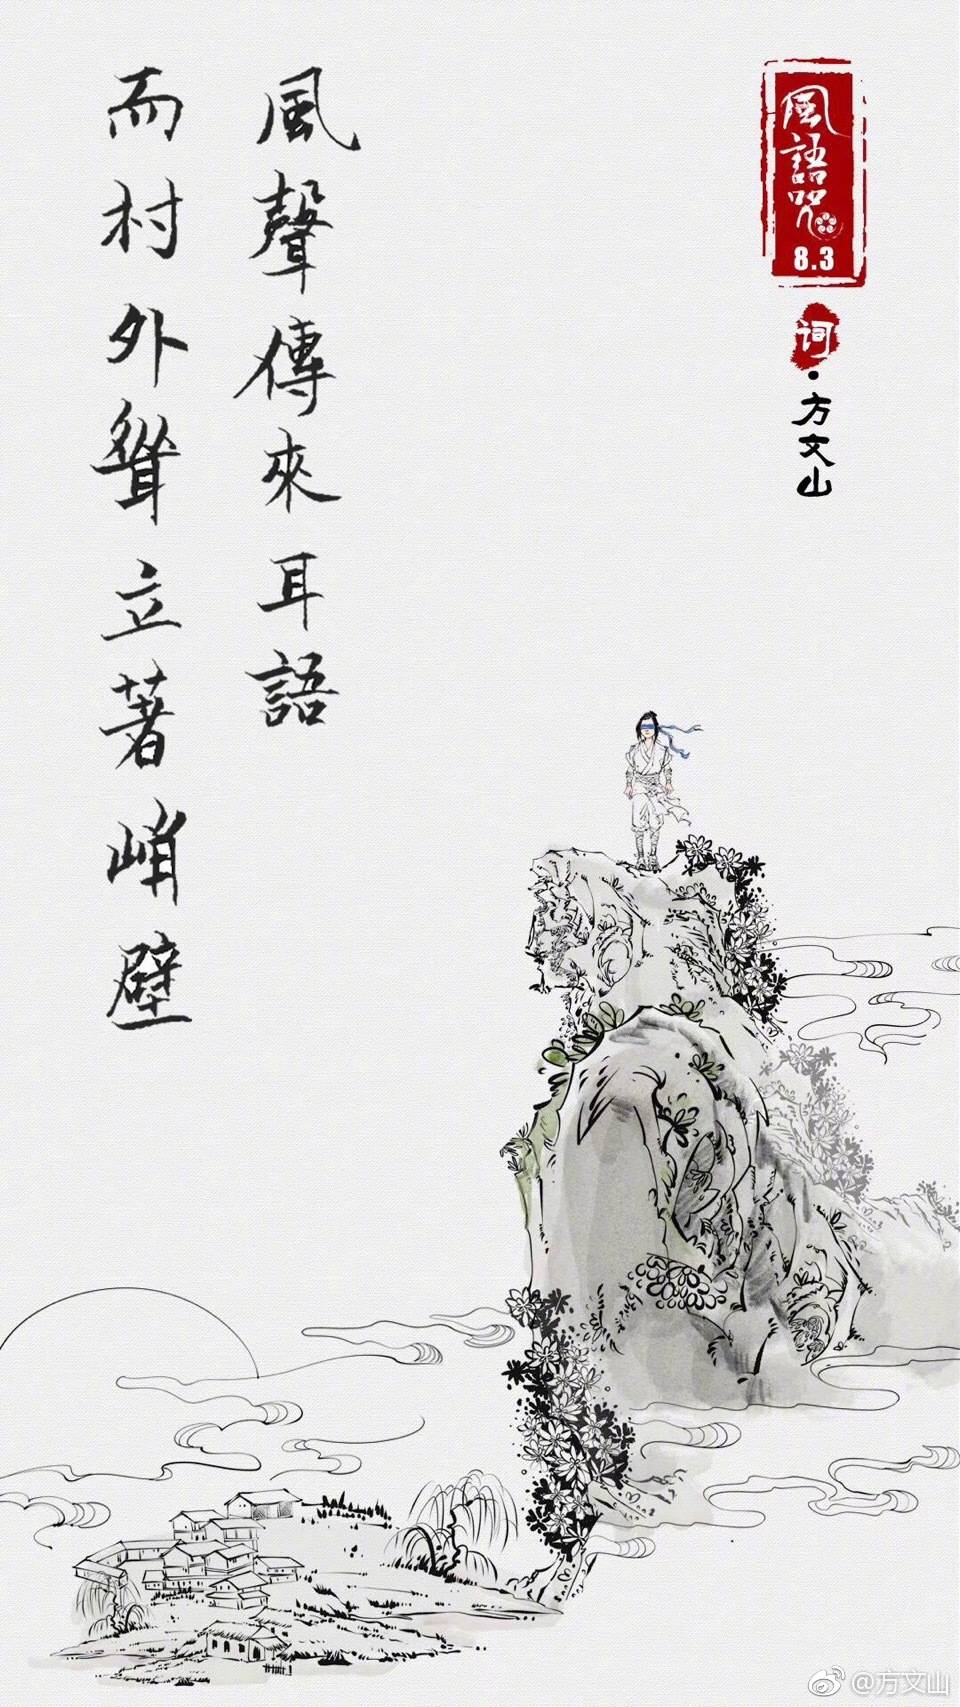 風語咒
8.3
詞·方文山
風聲傳來耳語
而村外聳立著峭壁
@方文山